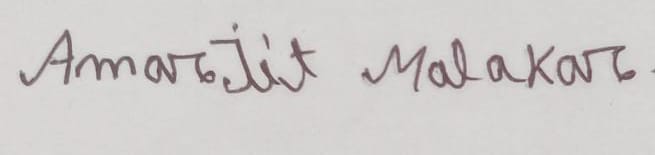 Amarjit Malakar